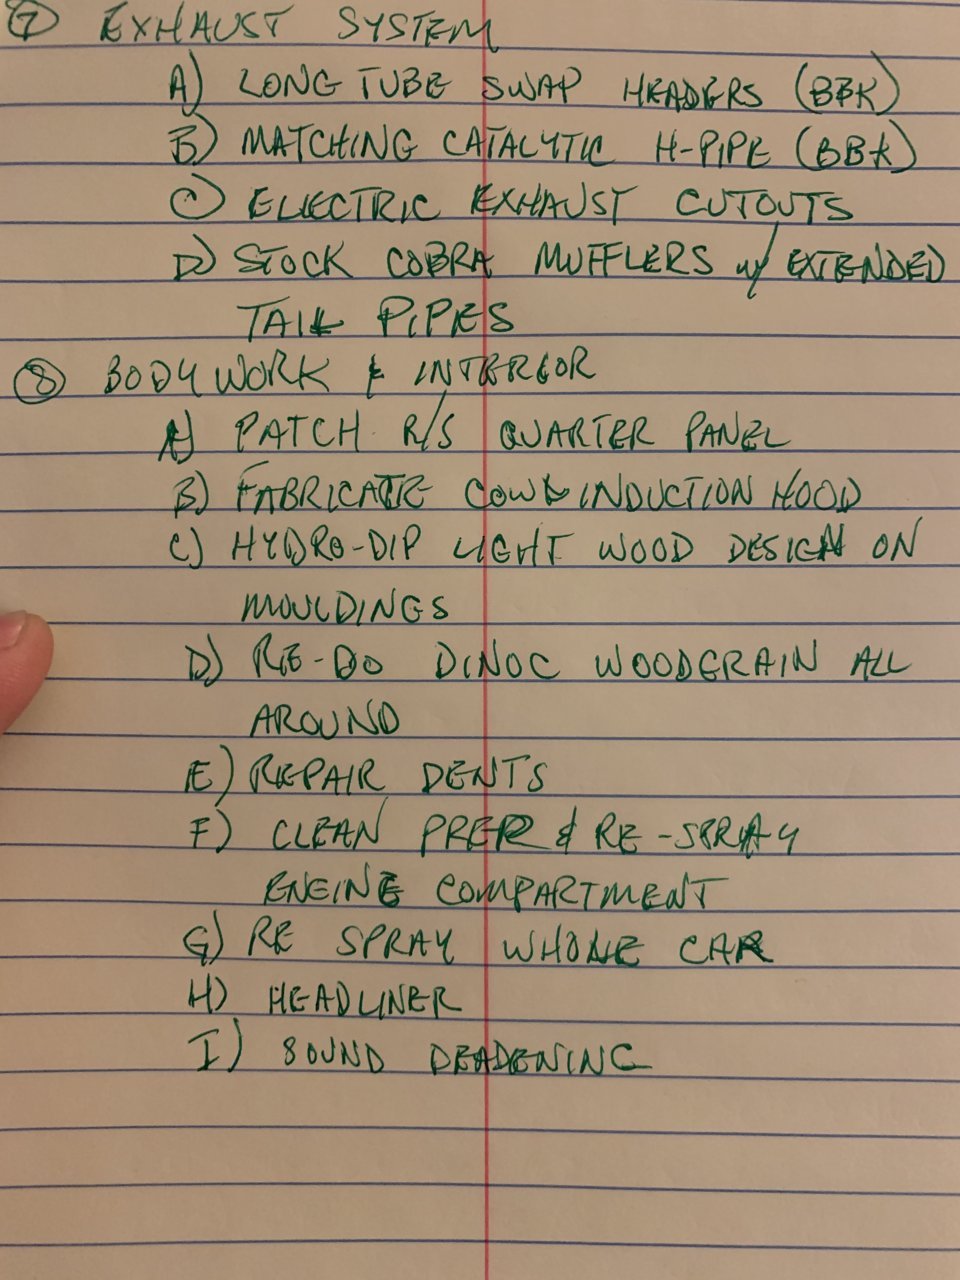 ⑦ EXHAUST SYSTEM
A) LONG TUBE SWAP HEADERS (BBK)
B) MATCHING CATALYTIC H-PIPE (BBK)
C) ELECTRIC EXHAUST CUTOUTS
D) STOCK COBRA MUFFLERS w/ EXTENDED
TAIL PIPES
⑧ BODY WORK & INTEREOR
A) PATCH R/S QUARTER PANEL
B) FABRICATE COWL INDUCTION HOOD
C) HYDRO-DIP LIGHT WOOD DESIGN ON
MOULDINGS
D) RE-DO DINOC WOODGRAIN ALL
AROUND
E) REPAIR DENTS
F) CLEAN PREP & RE-SPRAY
ENGINE COMPARTMENT
G) RE SPRAY WHOLE CAR
H) HEADLINER
I) SOUND DEADENING